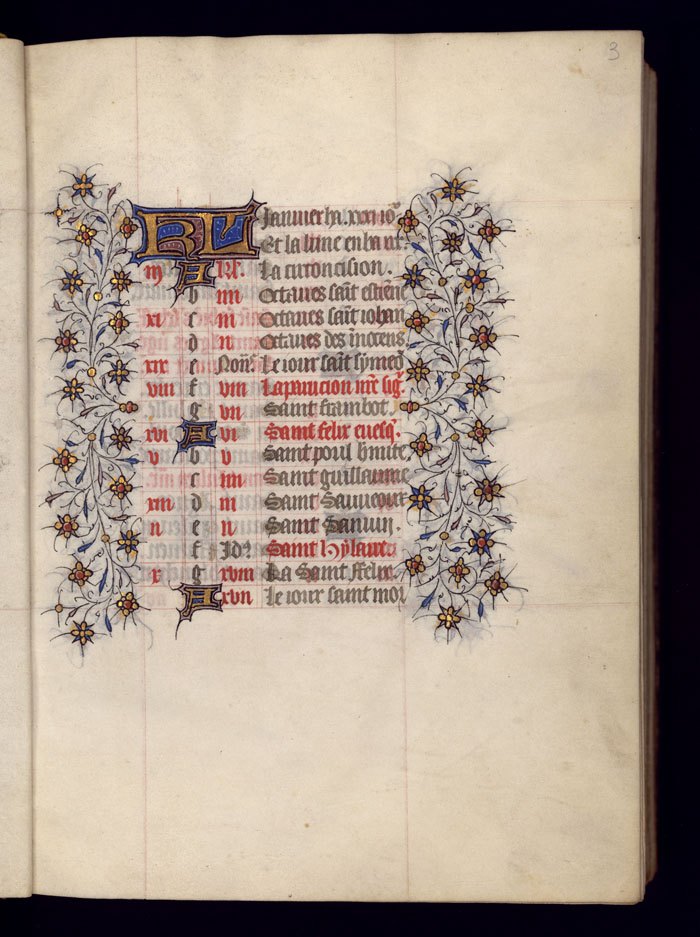 3
KL Januier ha. xxxi io˜
Et la lune en ha xx
iij A kl. La circoncision.
b iiii Octaues sait estiene
xi c iii Octaues sait iohan
d ii Octaues des inocens
xix e Non˜ Le iour sait symeo
viii f viii Laparucion nr̃e sig˜
g vii Saint frambot.
xvi A vi Saint felix euesq˜.
v b v Saint poul hmite
c iiii Saint guillaume
xiii d iii Saint Sauueour
ii e ii Saint
f Jd˜ Saint hylaire
x g xviii La Saint Felix.
A xvii Le iour saint mor